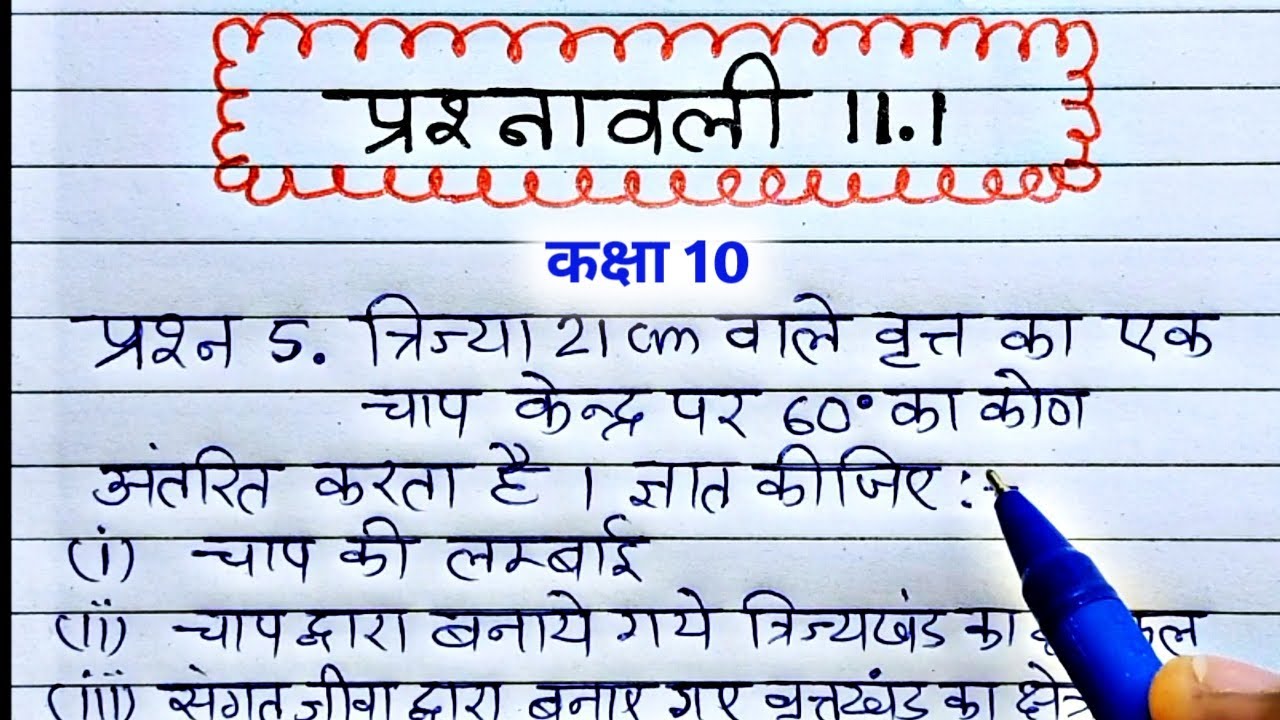 प्रश्नावली 11.1
कक्षा 10
प्रश्न 5. त्रिज्या 21 cm वाले वृत्त का एक
चाप केन्द्र पर 60° का कोण
अंतरित करता है । ज्ञात कीजिए :-
(i) चाप की लम्बाई
(ii) चाप द्वारा बनाये गये त्रिज्यखंड का
(iii) संगत जीवा द्वारा बनाए गए वृत्तखंड का